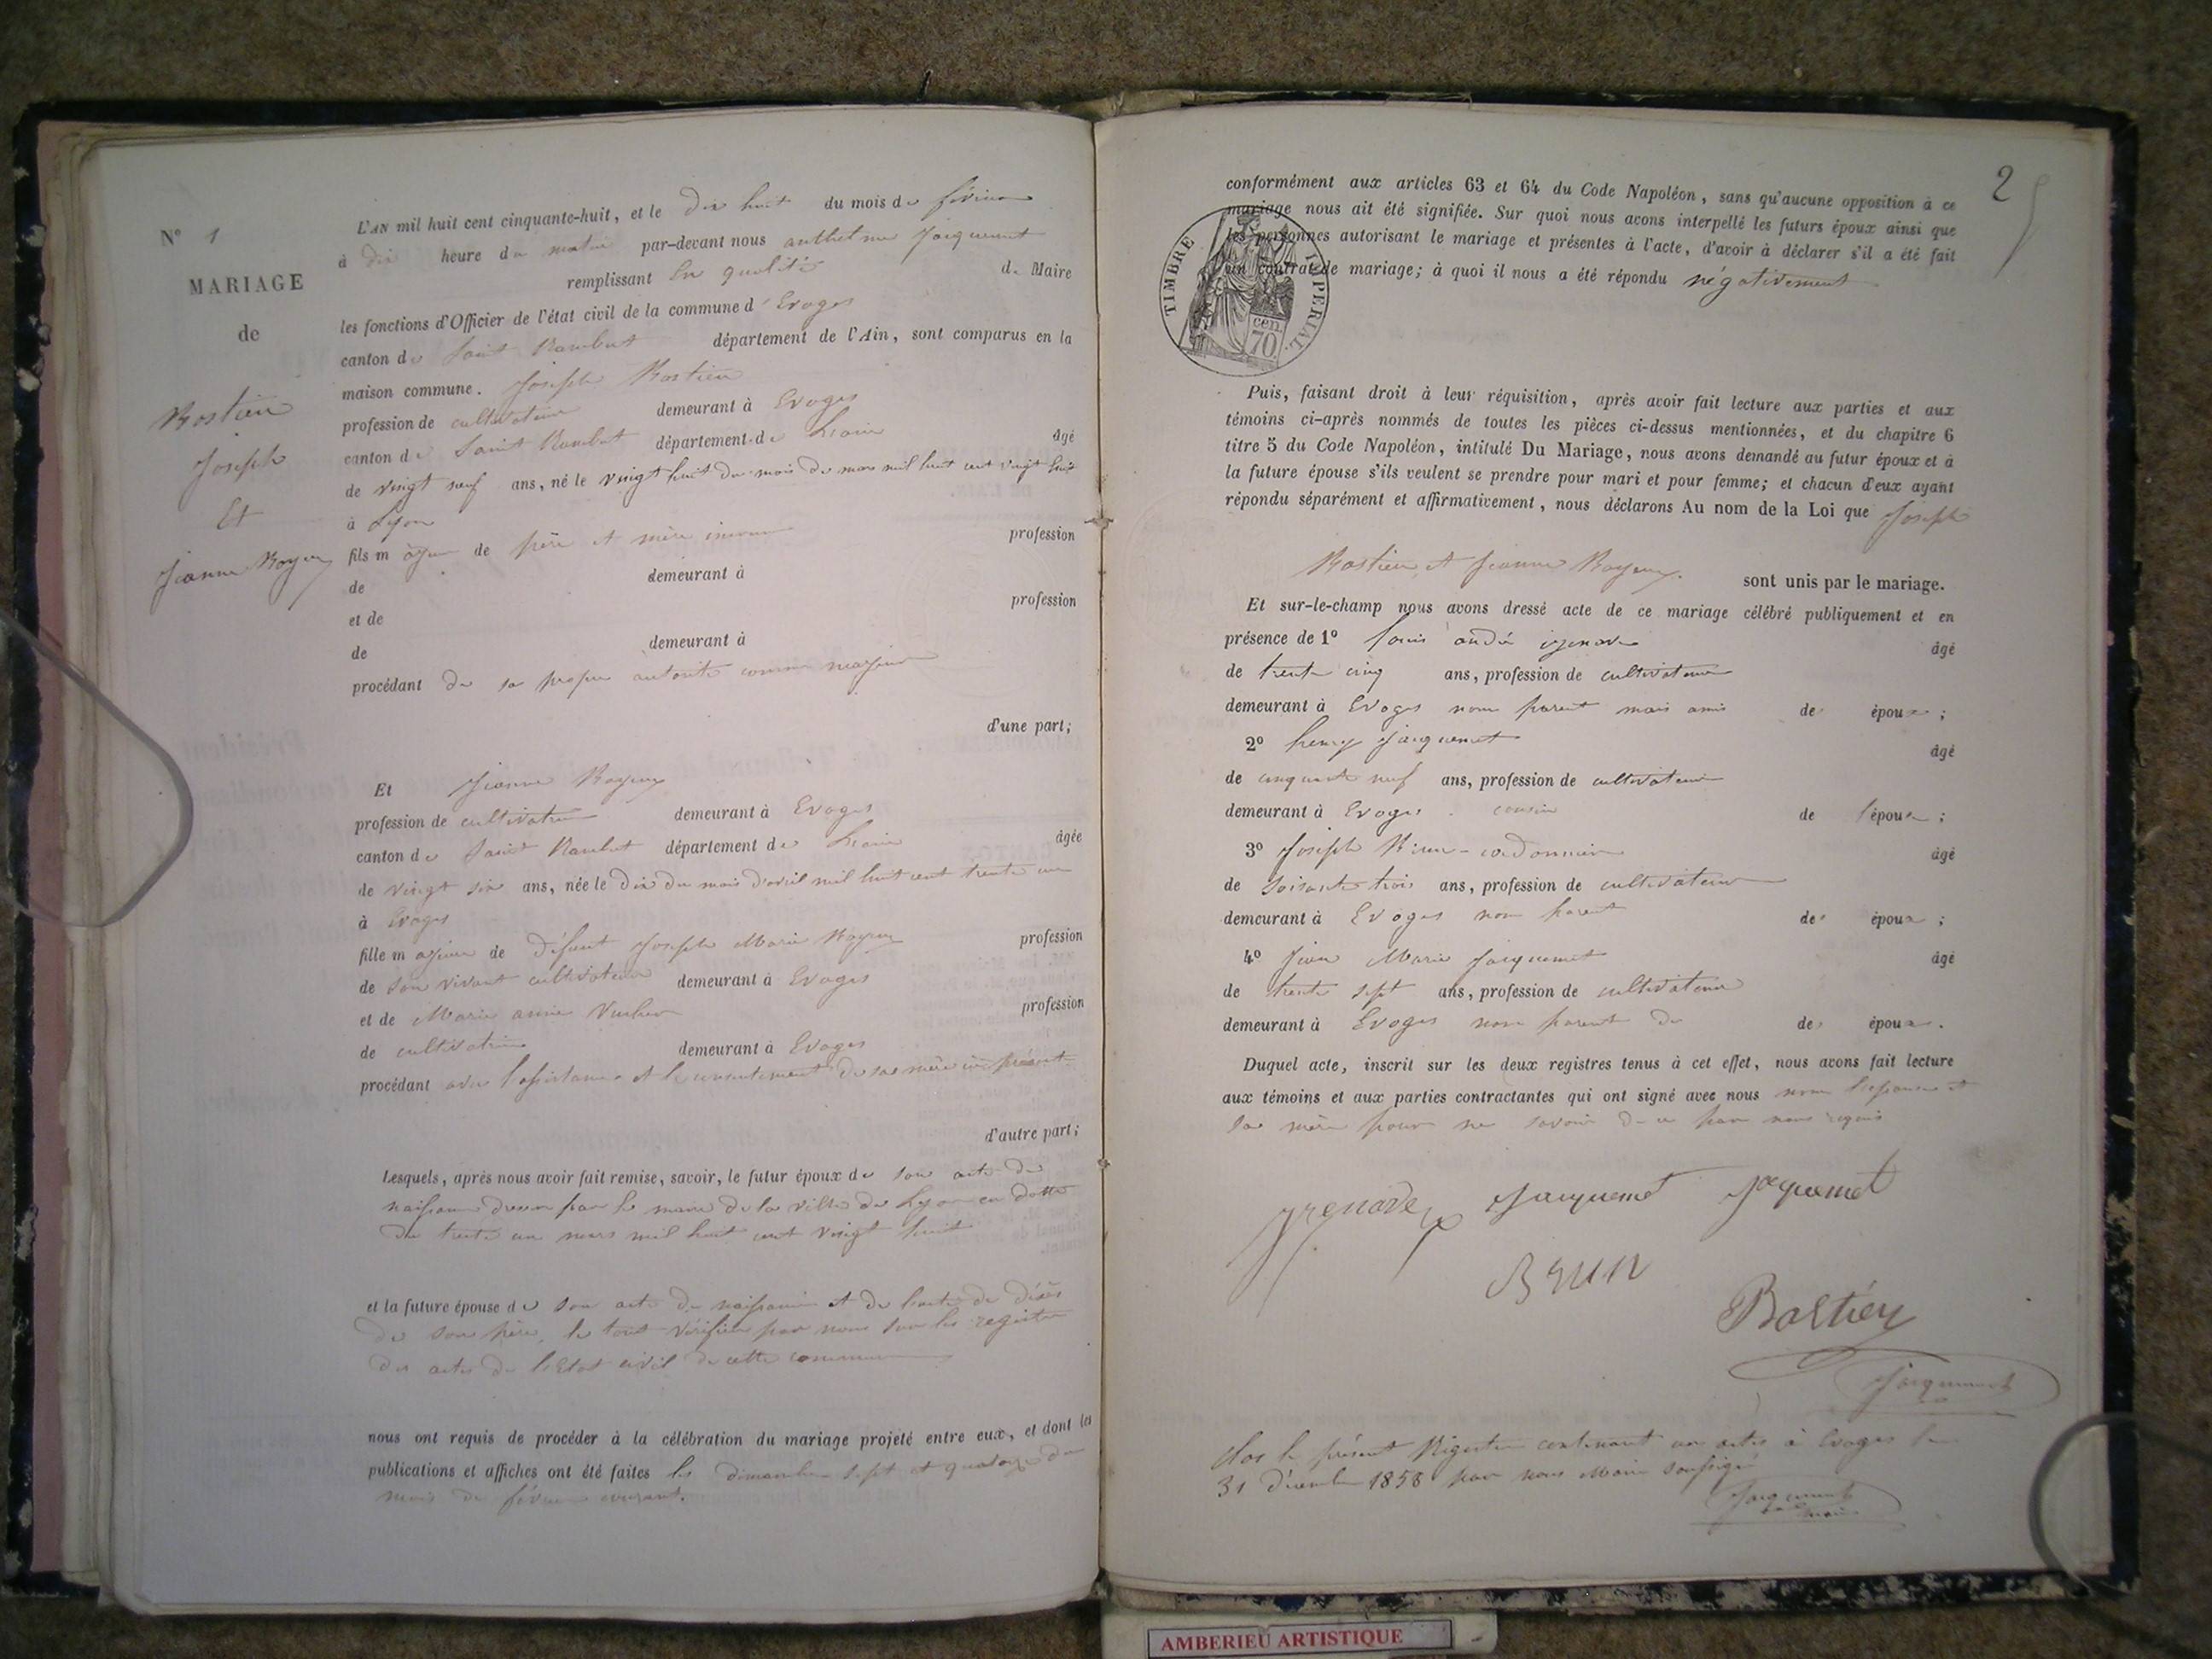 N° 1
MARIAGE
de
Bastien
Joseph
Et
Jeanne Royeux
L'AN mil huit cent cinquante-huit, et le Dix huit du mois de février
à dix heure du matin par-devant nous anthelme Jacquemet
remplissant En qualité de Maire
les fonctions d'Officier de l'état civil de la commune d'Evoges
canton de Saint Rambert département de l'Ain, sont comparus en la
maison commune. Joseph Bastien
profession de cultivateur demeurant à Evoges
canton de Saint Rambert département de L'ain âgé
de vingt neuf ans, né le vingt huit du mois de mars mil huit cent vingt huit
à Lyon
fils majeur de père et mère inconnu profession
de demeurant à
et de profession
de demeurant à
procédant de sa propre autorité comme majeur
d'une part;
Et Jeanne Royeux
profession de cultivatrice demeurant à Evoges
canton de Saint Rambert département de L'ain âgée
de vingt six ans, née le Dix du mois d'avril mil huit cent trente un
à Evoges
fille majeure de Défunt Joseph Marie Royeux profession
de son vivant cultivateur demeurant à Evoges
et de Marie anne profession
de cultivatrice demeurant à Evoges
procédant avec l'assistance et le consentement de sa mère ici présente
d'autre part;
Lesquels, après nous avoir fait remise, savoir, le futur époux de son acte de
naissance dressé par le maire de la ville de Lyon en datte
du trente un mars mil huit cent vingt huit
et la future épouse de son acte de naissance et de l'acte de décès
de son père, le tout vérifié par nous sur les registres
des actes de l'Etat civil de cette commune
nous ont requis de procéder à la célébration du mariage projeté entre eux, et dont les
publications et affiches ont été faites les dimanches sept et quatorze du
mois de février courant.
2
conformément aux articles 63 et 64 du Code Napoléon, sans qu'aucune opposition à ce
mariage nous ait été signifiée. Sur quoi nous avons interpellé les futurs époux ainsi que
les personnes autorisant le mariage et présentes à l'acte, d'avoir à déclarer s'il a été fait
un contrat de mariage; à quoi il nous a été répondu négativement
TIMBRE IMPERIAL.
cen.
70
Puis, faisant droit à leur réquisition, après avoir fait lecture aux parties et aux
témoins ci-après nommés de toutes les pièces ci-dessus mentionnées, et du chapitre 6
titre 5 du Code Napoléon, intitulé Du Mariage, nous avons demandé au futur époux et à
la future épouse s'ils veulent se prendre pour mari et pour femme; et chacun d'eux ayant
répondu séparément et affirmativement, nous déclarons Au nom de la Loi que Joseph
Bastien et Jeanne Royeux. sont unis par le mariage.
Et sur-le-champ nous avons dressé acte de ce mariage célébré publiquement et en
présence de 1° Louis andré âgé
de trente cinq ans, profession de cultivateur
demeurant à Evoges non parent mais amis des époux;
2° henry Jacquemet âgé
de cinquante neuf ans, profession de cultivateur
demeurant à Evoges cousin de l'épouse;
3° Joseph Brun-cordonnier âgé
de soixante trois ans, profession de cultivateur
demeurant à Evoges non parent des époux;
4° Jean Marie Jacquemet âgé
de trente sept ans, profession de cultivateur
demeurant à Evoges non parent de des époux.
Duquel acte, inscrit sur les deux registres tenus à cet effet, nous avons fait lecture
aux témoins et aux parties contractantes qui ont signé avec nous non l'épouse et
sa mère pour ne savoir de ce par nous requis
Jacquemet Jacquemet
BRUN
Bastien
Jacquemet
Clos le présent Registre contenant un acte à Evoges le
31 décembre 1858 par nous Maire soussigné
Jacquemet
maire
AMBERIEU ARTISTIQUE